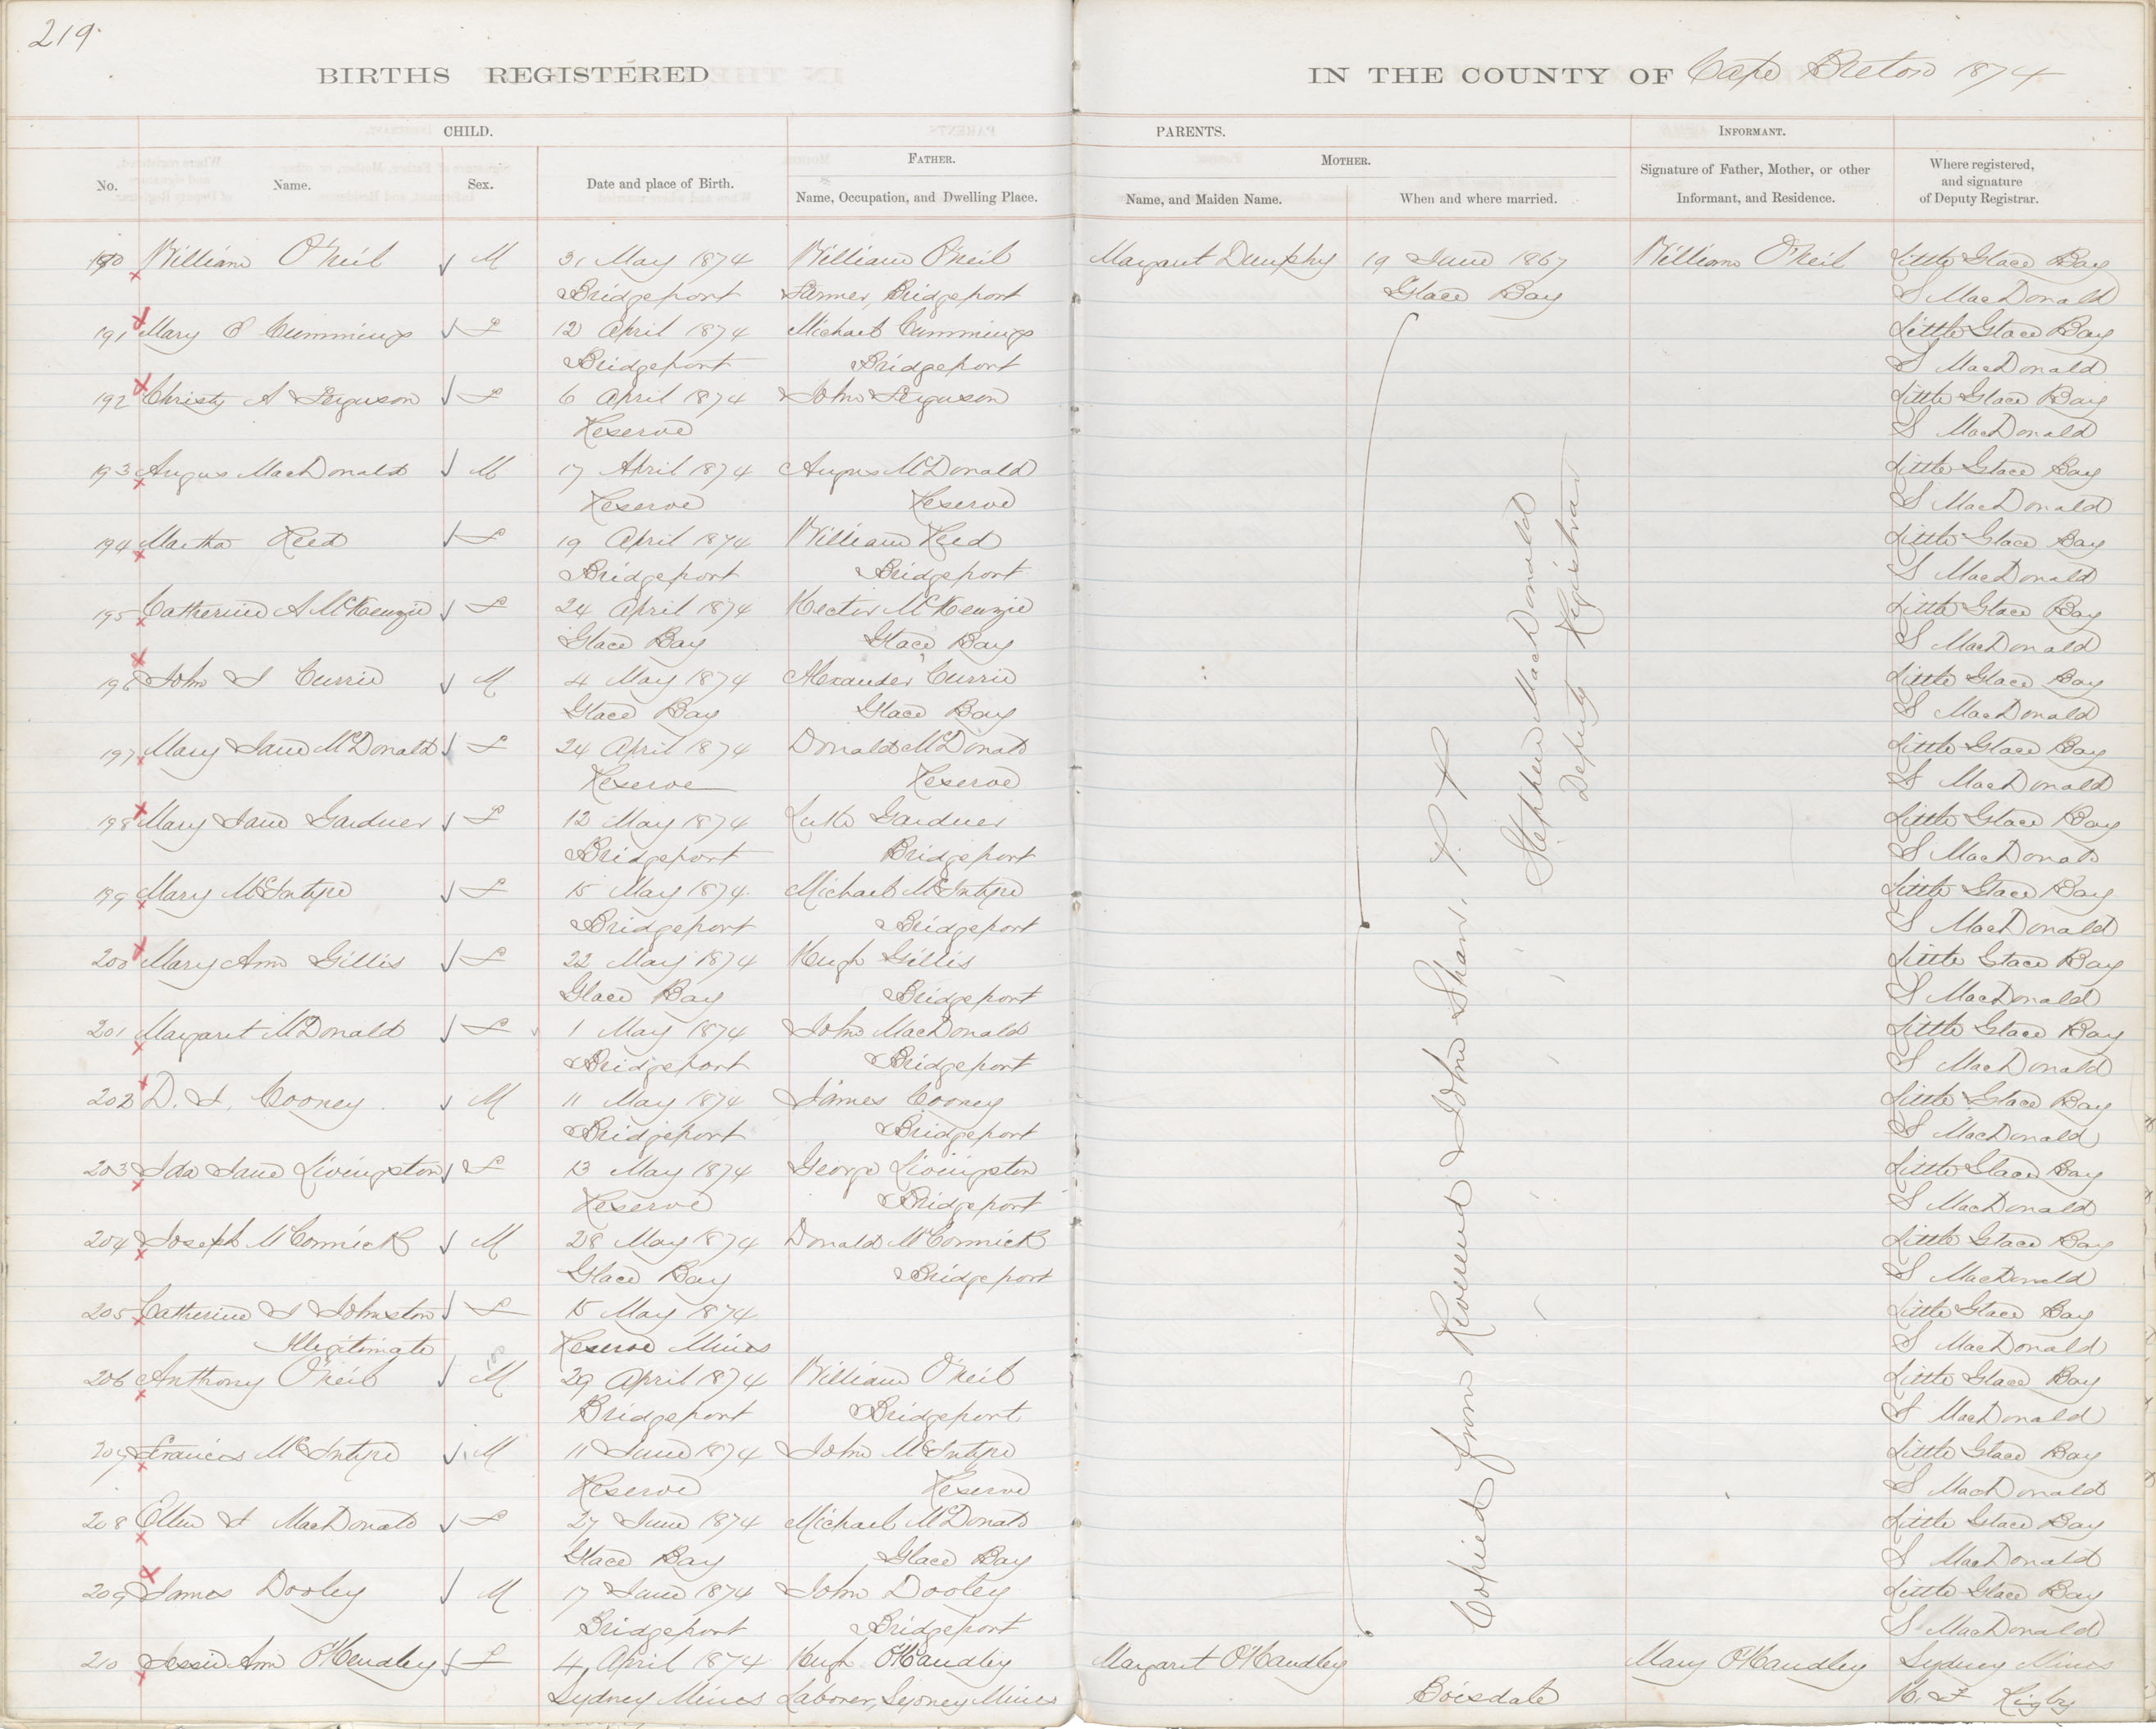 219.
BIRTHS REGISTERED
IN THE COUNTY OF Cape Breton 1874
CHILD.
PARENTS.
INFORMANT.
No.
Name.
Sex.
Date and place of Birth.
FATHER.
Name, Occupation, and Dwelling Place.
MOTHER.
Name, and Maiden Name.
When and where married.
Signature of Father, Mother, or other
Informant, and Residence.
Where registered,
and signature
of Deputy Registrar.
190 William O'Neil M 31 May 1874 William O'Neil Margaret Dunphy 19 June 1867 William O'Neil Little Glace Bay
Bridgeport Farmer, Bridgeport Glace Bay S MacDonald
191 Mary E Cummings F 12 April 1874 Michael Cummings Little Glace Bay
Bridgeport Bridgeport S MacDonald
192 Christy A Ferguson F 6 April 1874 John Ferguson Little Glace Bay
Reserve S MacDonald
193 Angus MacDonald M 17 April 1874 Angus McDonald Little Glace Bay
Reserve Reserve S MacDonald
194 Martha Reed F 19 April 1874 William Reed Little Glace Bay
Bridgeport Bridgeport S MacDonald
195 Catherine A McKenzie F 24 April 1874 Hector McKenzie Little Glace Bay
Glace Bay Glace Bay S MacDonald
196 John J Currie M 4 May 1874 Alexander Currie Little Glace Bay
Glace Bay Glace Bay S MacDonald
197 Mary Jane McDonald F 24 April 1874 Donald McDonald Little Glace Bay
Reserve Reserve S MacDonald
198 Mary Jane Gardner F 12 May 1874 Luke Gardner Little Glace Bay
Bridgeport Bridgeport S MacDonald
199 Mary McIntyre F 15 May 1874 Michael McIntyre Little Glace Bay
Bridgeport Bridgeport S MacDonald
200 Mary Ann Gillis F 22 May 1874 Hugh Gillis Little Glace Bay
Glace Bay Bridgeport S MacDonald
201 Margaret McDonald F 1 May 1874 John MacDonald Little Glace Bay
Bridgeport Bridgeport S MacDonald
202 D. J. Cooney M 11 May 1874 James Cooney Little Glace Bay
Bridgeport Bridgeport S MacDonald
203 Ida Jane Livingston F 13 May 1874 George Livingston Little Glace Bay
Reserve Bridgeport S MacDonald
204 Joseph McCormick M 28 May 1874 Donald McCormick Little Glace Bay
Glace Bay Bridgeport S MacDonald
205 Catherine J Johnston F 15 May 1874 Little Glace Bay
Illegitimate Reserve Mines S MacDonald
206 Anthony O'Neil M 29 April 1874 William O'Neil Little Glace Bay
Bridgeport Bridgeport S MacDonald
207 Francis McIntyre M 11 June 1874 John McIntyre Little Glace Bay
Reserve Reserve S MacDonald
208 Ellen J MacDonald F 27 June 1874 Michael McDonald Little Glace Bay
Glace Bay Glace Bay S MacDonald
209 James Dooley M 17 June 1874 John Dooley Little Glace Bay
Bridgeport Bridgeport S MacDonald
210 Jessie Ann O'Handley F 4 April 1874 Hugh O'Handley Margaret O'Handley Mary O'Handley Sydney Mines
Sydney Mines Laborer, Sydney Mines Boisdale Rigby
Copied from Reverend John Shaw, P. P.
Stephen MacDonald
Deputy Registrar